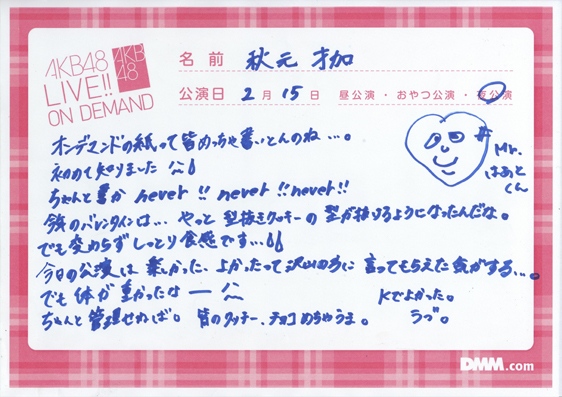 AKB48
LIVE!!
ON DEMAND
AKB
48
名前 秋元 才加
公演日 2月15日 昼公演・おやつ公演・夜公演
オンデマンドの紙って皆めっちゃ書いとんのね…。
初めて知りました
ちゃんと書か never!! never!! never!!
今年のバレンタインは… やっと型抜きクッキーの型が抜けるようになったんだな。
でも変わらずしっとり食感です…
今日の公演は楽しかった、よかったって沢山の方に言ってもらえた気がする…。
でも体が重かったなー
ちゃんと管理せねば。皆のクッキー、チョコめちゃうま。
Kでよかった。
うづ。
Mr.
はあと
くん
DMM.com